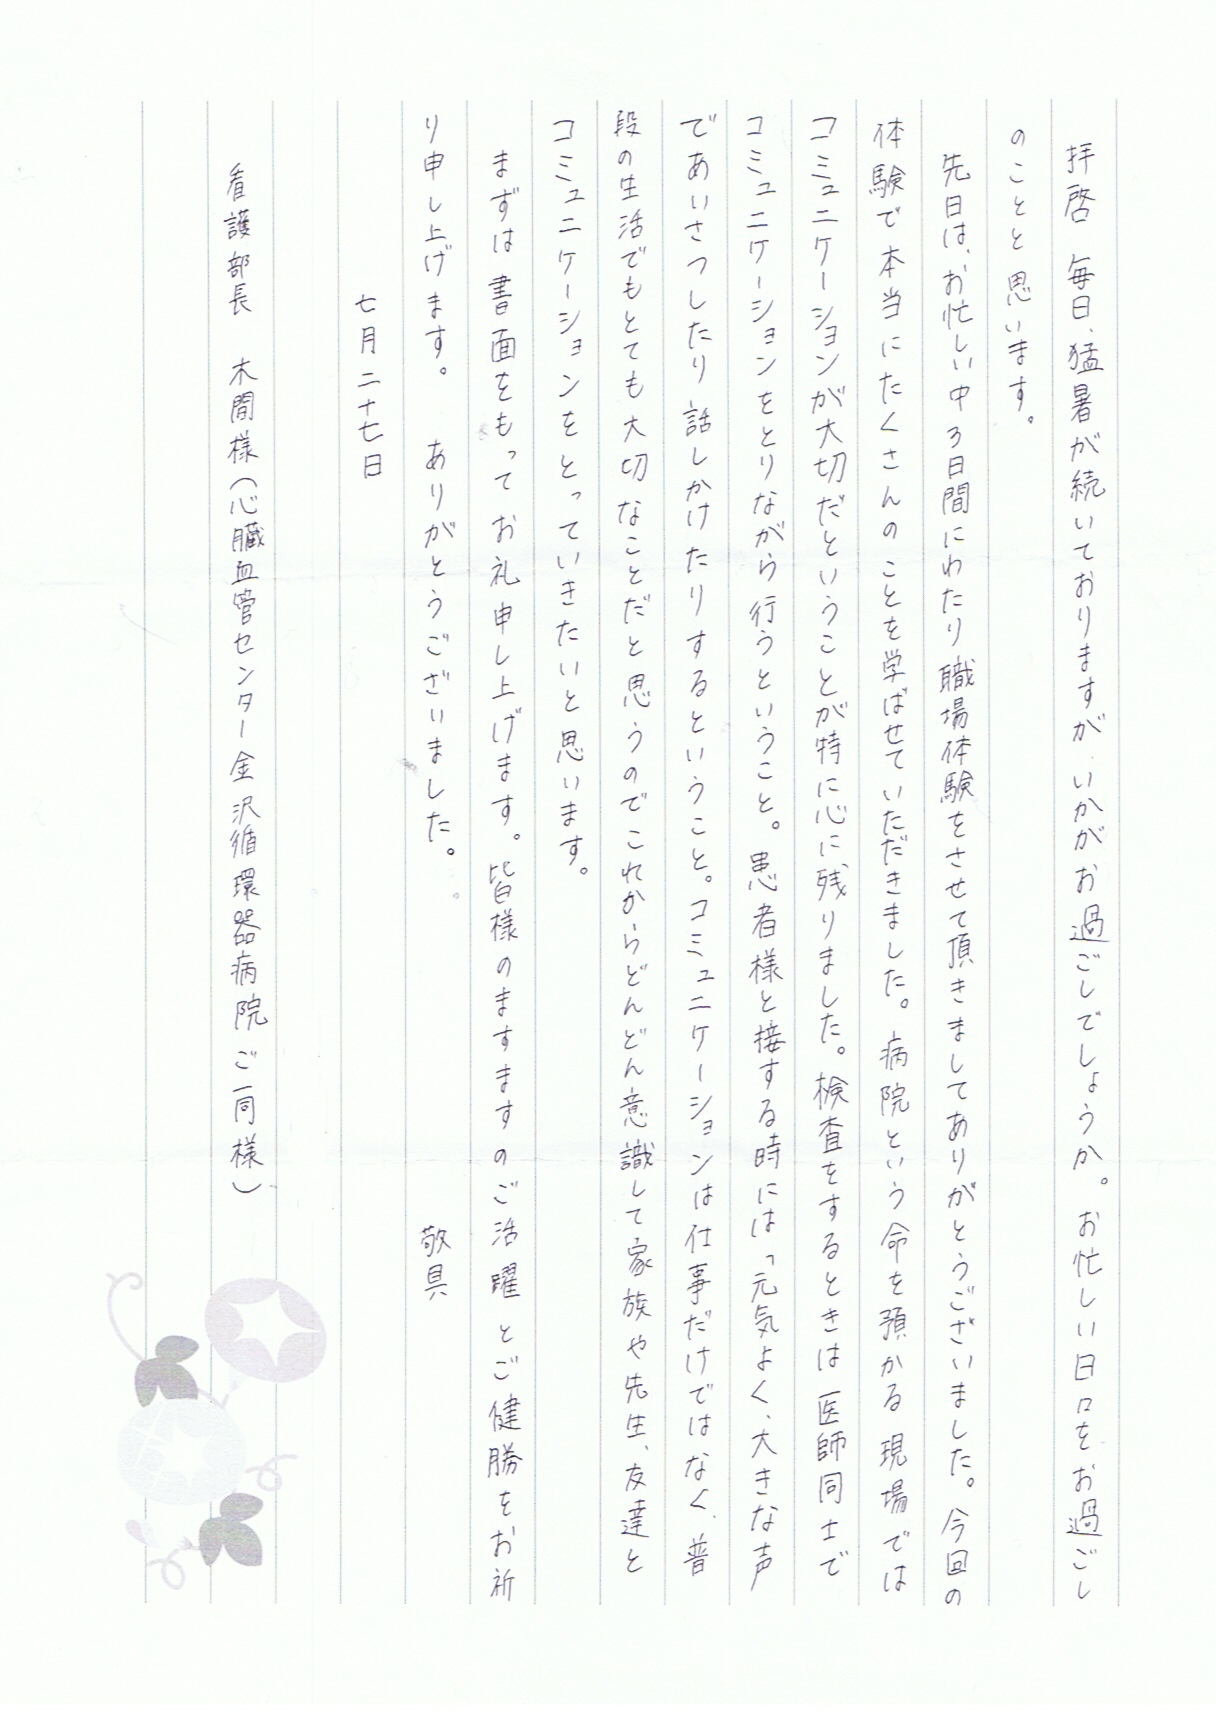 拝啓　毎日、猛暑が続いておりますが、いかがお過ごしでしょうか。お忙しい日々をお過ごし
のことと思います。
先日は、お忙しい中3日間にわたり職場体験をさせて頂きましてありがとうございました。今回の
体験で本当にたくさんのことを学ばせていただきました。病院という命を預かる現場では
コミュニケーションが大切だということが特に心に残りました。検査をするときは医師同士で
コミュニケーションをとりながら行うということ。患者様と接する時には「元気よく、大きな声
であいさつしたり話しかけたりするということ。コミュニケーションは仕事だけではなく、普
段の生活でもとても大切なことだと思うのでこれからどんどん意識して家族や先生、友達と
コミュニケーションをとっていきたいと思います。
まずは書面をもってお礼申し上げます。皆様のますますのご活躍とご健勝をお祈
り申し上げます。　ありがとうございました。　敬具
七月二十七日
看護部長　木間様（心臓血管センター金沢循環器病院ご一同様）